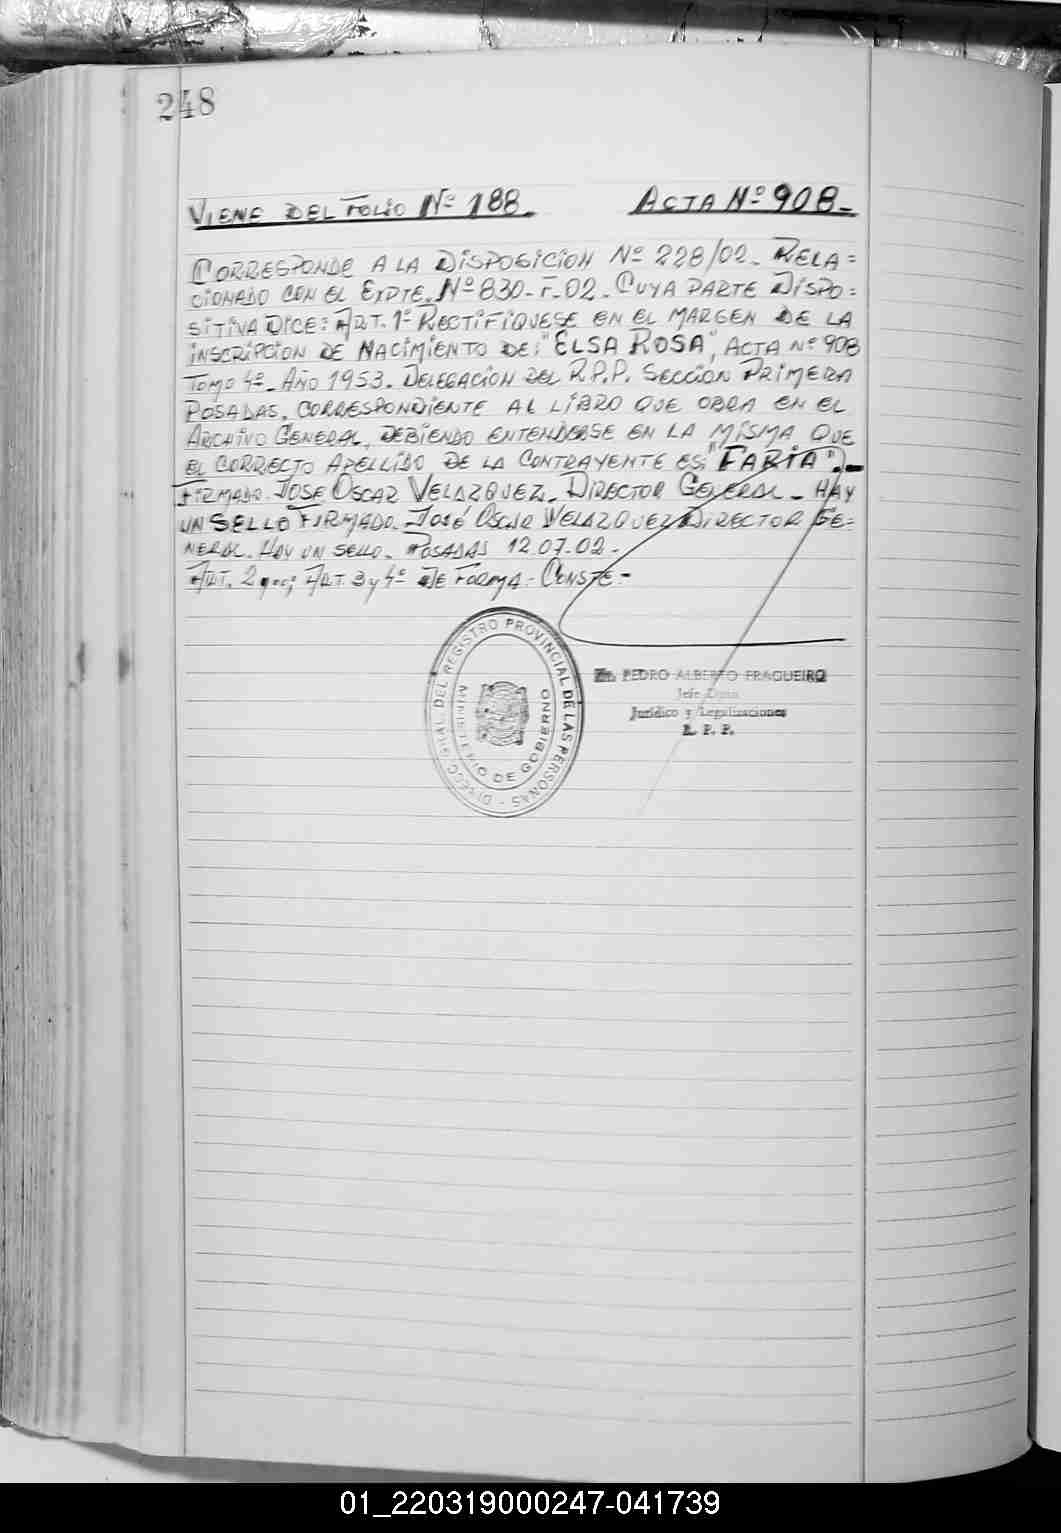 248
VIENE DEL FOLIO Nº 188 ACTA Nº 908-
CORRESPONDE A LA DISPOSICION Nº 228/02- RELA=
CIONADO CON EL EXPTE. Nº 830-F-02- CUYA PARTE DISPO=
SITIVA DICE: ART. 1º RECTIFIQUESE EN EL MARGEN DE LA
INSCRIPCION DE NACIMIENTO DE: "ELSA ROSA", ACTA Nº 908
TOMO 4º- AÑO 1953- DELEGACION DEL R.P.P. SECCION PRIMERA
POSADAS. CORRESPONDIENTE AL LIBRO QUE OBRA EN EL
ARCHIVO GENERAL, DEBIENDO ENTENDERSE EN LA MISMA QUE
EL CORRECTO APELLIDO DE LA CONTRAYENTE ES: "FARIA".-
FIRMADO. JOSE OSCAR VELAZQUEZ- DIRECTOR GENERAL- HAY
UN SELLO FIRMADO- JOSÉ OSCAR VELAZQUEZ DIRECTOR GE=
NERAL. HAY UN SELLO- POSADAS 12-07-02-
ART. 2 ART. 3 y 4º DE FORMA- CONSTE:-
DIRECC. GRAL. DEL REGISTRO PROVINCIAL DE LAS PERSONAS -
MINISTERIO DE GOBIERNO
PEDRO ALBERTO FRAGUEIRO
Jefe Dpto.
Jurídico y Legalizaciones
R. P. P.
01_220319000247-041739